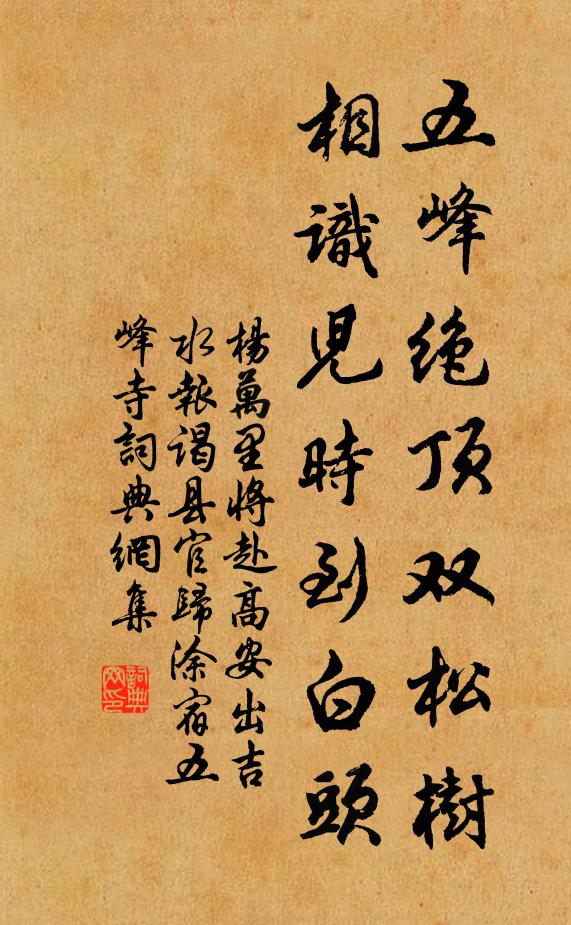 五峰绝顶双松樹
相識児時到白頭
楊萬里将赴高安出吉
水報謁县官歸涂宿五
峰寺詞典網集
詞典网印